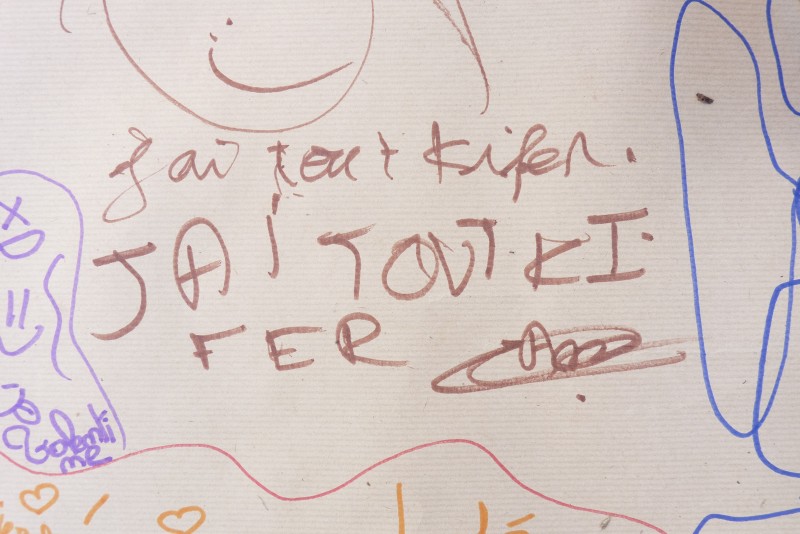 j'ai tout kifer.
JAi TOUT KI
FER
XD
=)
Valenti
ne